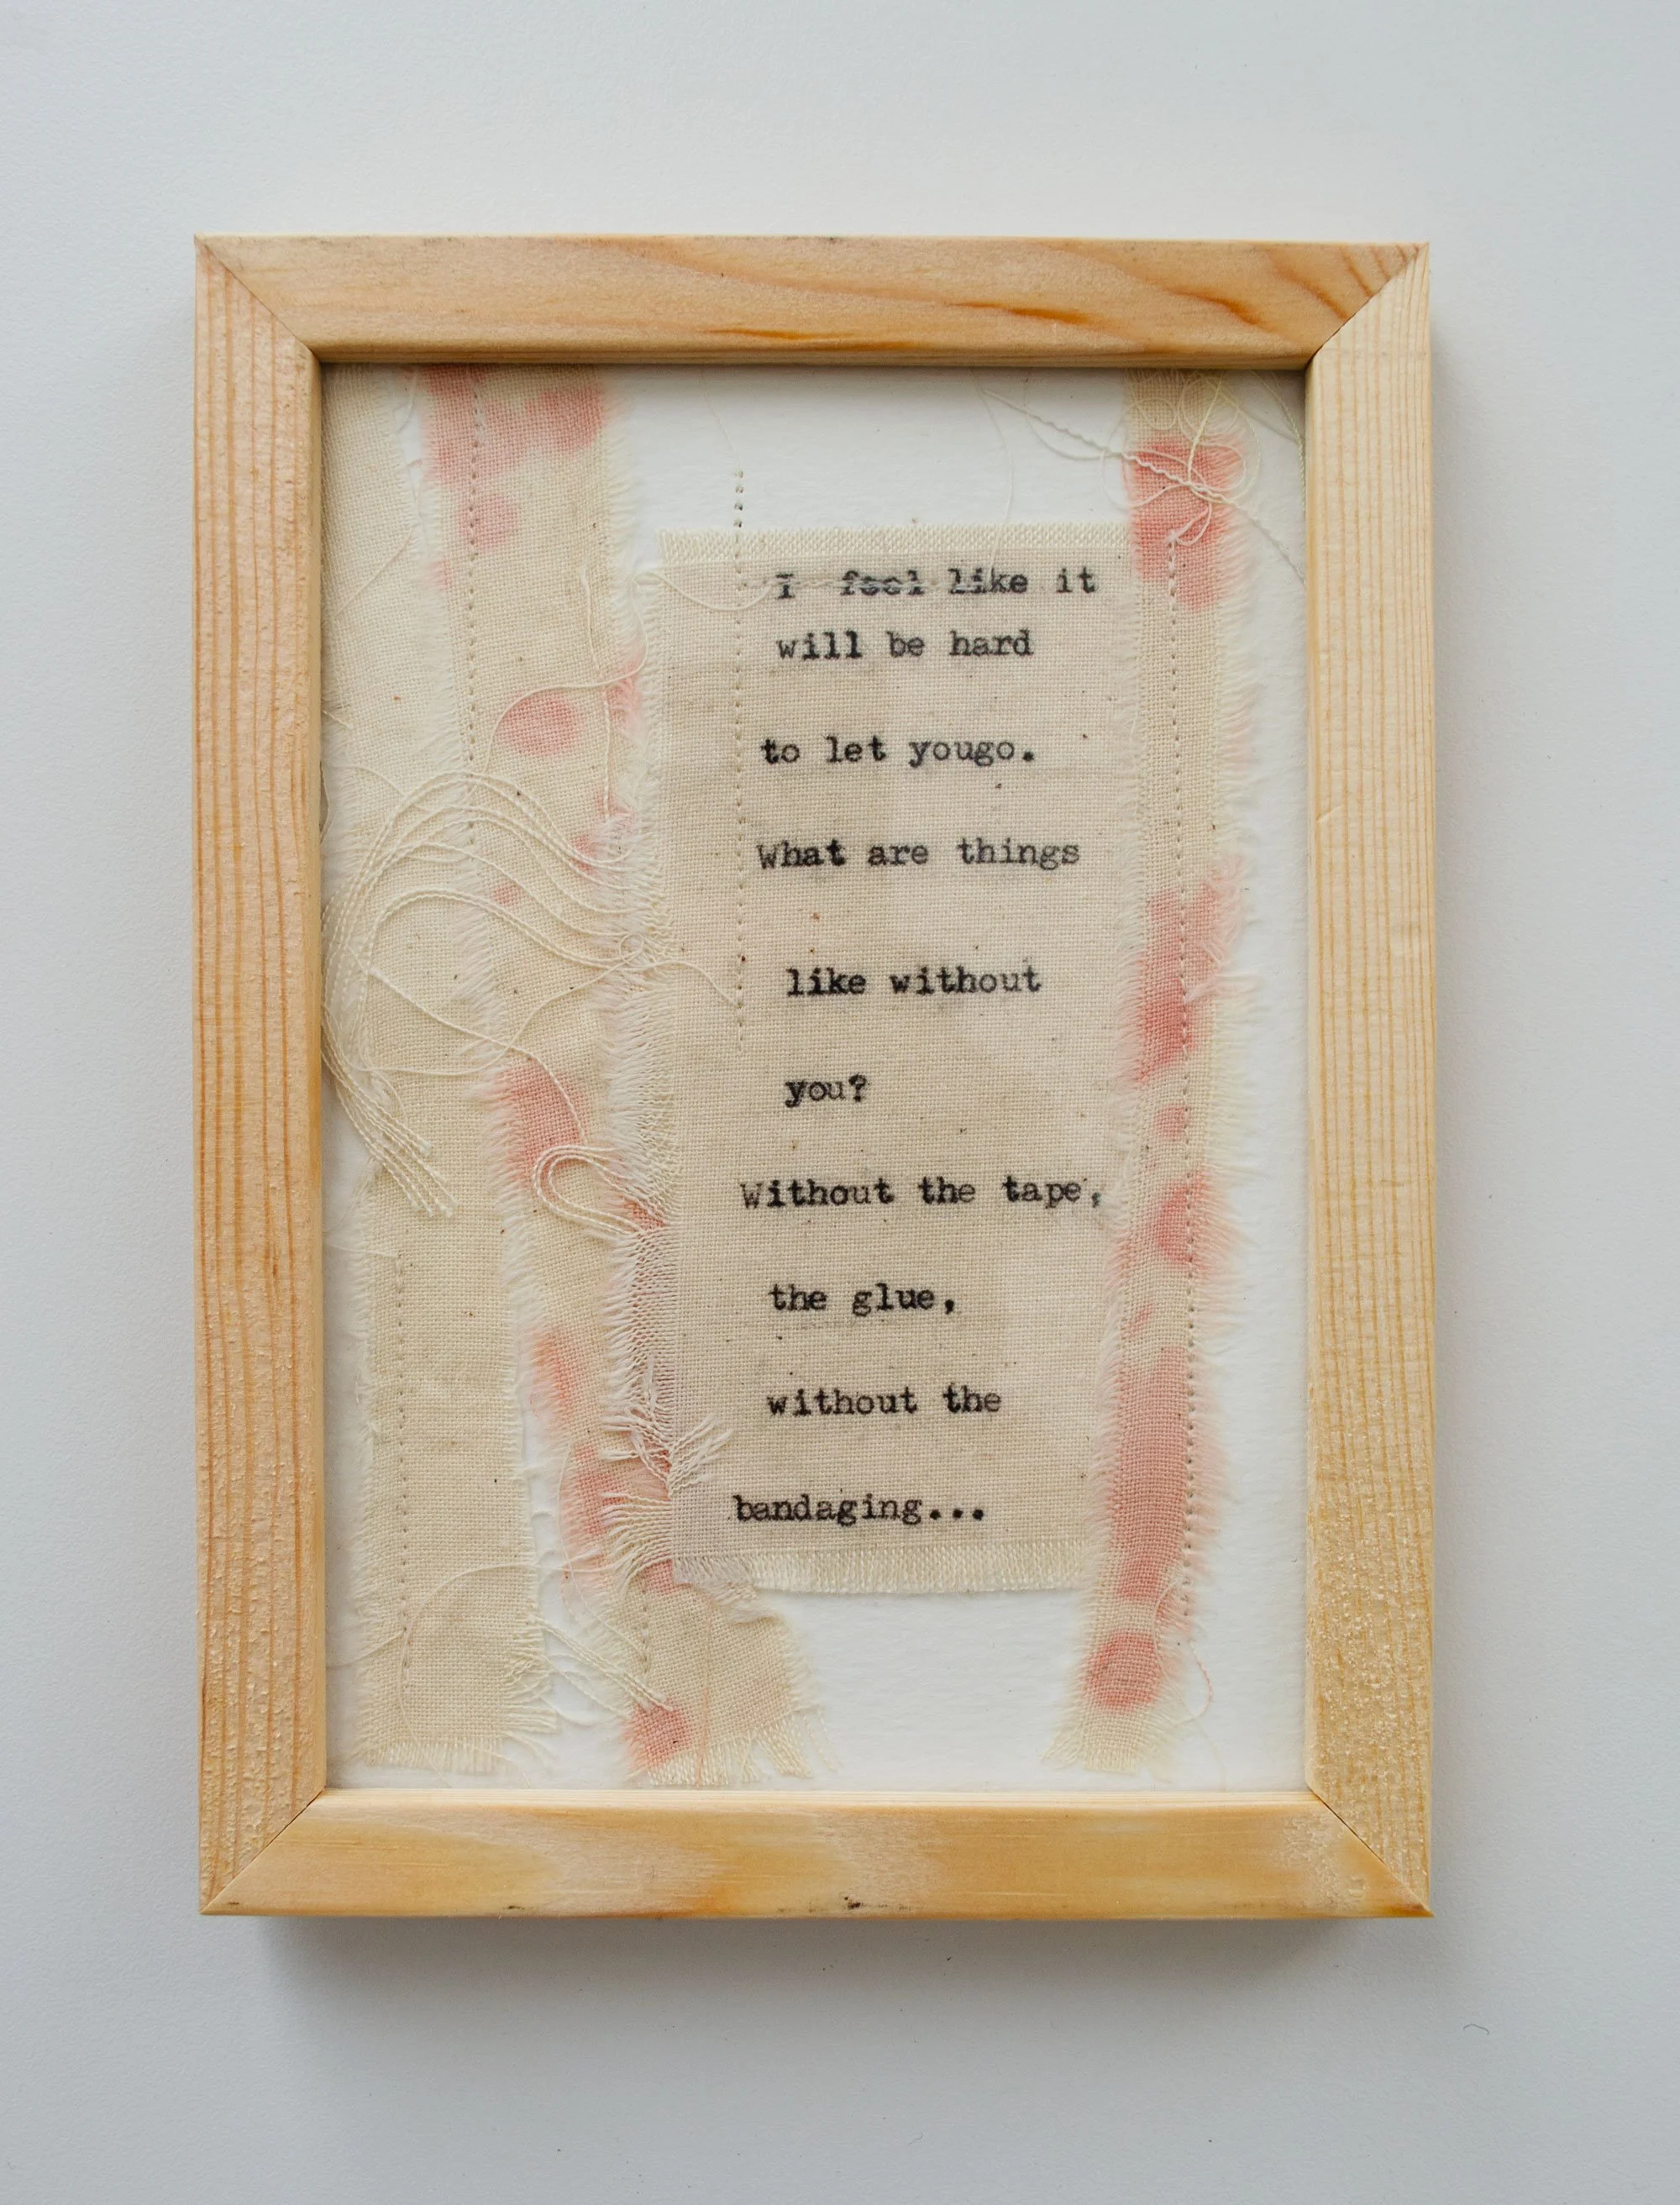 I feel like it
will be hard
to let yougo.
What are things
like without
you?
Without the tape,
the glue,
without the
bandaging...